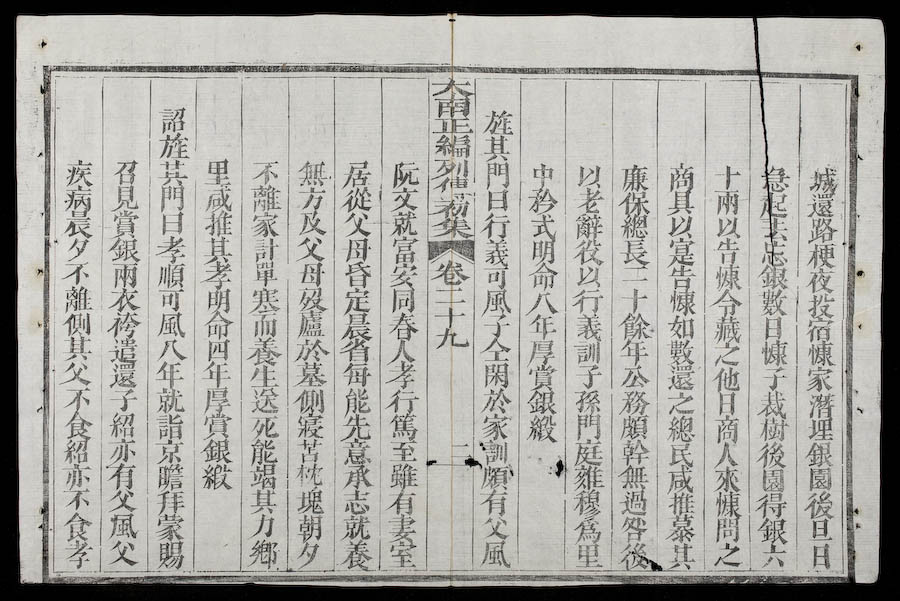 城還路梗夜投宿悚家潛埋銀園後旦日
急起去忘銀數日悚子栽樹後園得銀六
十兩以告悚令藏之他日商人來悚問之
商具以寔告悚如數還之總民咸推慕其
廉保總長二十餘年公務頗幹無過咎後
以老辭役以行義訓子孫門庭雍穆為里
中矜式明命八年厚賞銀緞
旌其門曰行義可風子全閑於家訓頗有父風
大南正編列傳初集 卷二十九 二
阮文就富安同春人孝行篤至雖有妻室
居從父母昏定晨省每能先意承志就養
無方及父母歿廬於墓側寢苫枕塊朝夕
不離家計單寒而養生送死能竭其力鄉
里咸推其孝明命四年厚賞銀緞
詔旌其門曰孝順可風八年就詣京瞻拜蒙賜
召見賞銀兩衣袴遣還子紹亦有父風父
疾病晨夕不離側其父不食紹亦不食孝